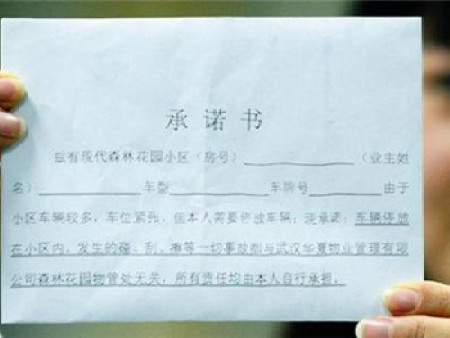 承诺书
兹有现代森林花园小区（房号）（业主姓
名）车型车牌号由于
小区车辆较多，车位紧张，但本人需要停放车辆；现承诺：车辆停放
在小区内，发生的碰、刮、擦等一切事故都与武汉华夏物业管理有限
公司森林花园物管处无关，所有责任均由本人自行承担。